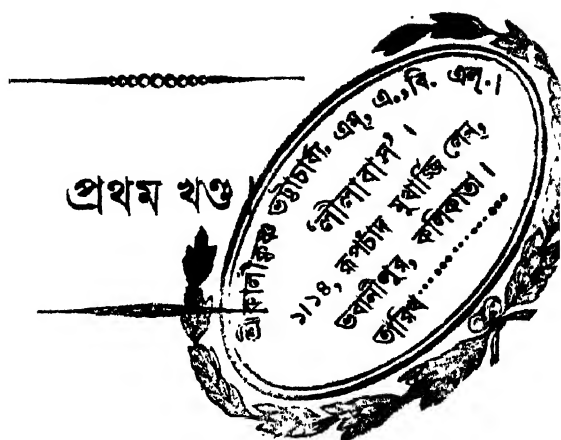 প্রথম খণ্ড।
শ্রীকালীকৃষ্ণ ভট্টাচার্য্য, এম্, এ., বি. এল্.।
'লীলাবাস'।
১।১৪, রূপচাঁদ মুখার্জ্জি লেন,
ভবানীপুর, কলিকাতা।
তারিখ..................